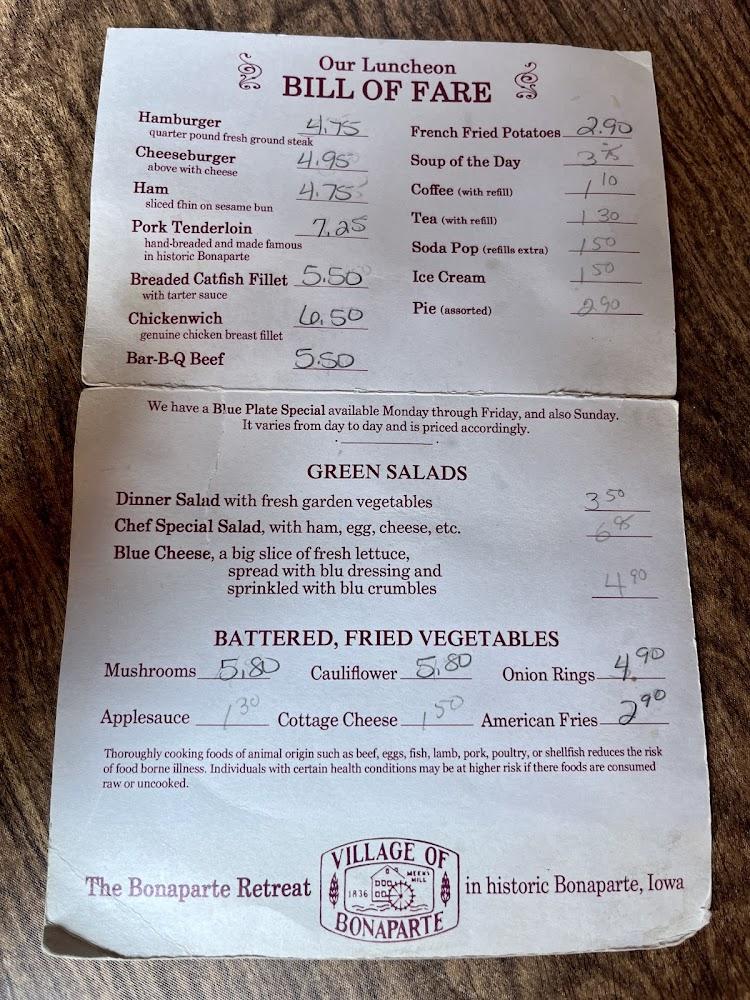 Our Luncheon
BILL OF FARE
Hamburger 4.75
quarter pound fresh ground steak
Cheeseburger 4.95
above with cheese
Ham 4.75
sliced thin on sesame bun
Pork Tenderloin 7.25
hand-breaded and made famous
in historic Bonaparte
Breaded Catfish Fillet 5.50
with tarter sauce
Chickenwich 6.50
genuine chicken breast fillet
Bar-B-Q Beef 5.50
French Fried Potatoes 2.90
Soup of the Day 3.75
Coffee (with refill) 1 10
Tea (with refill) 1 30
Soda Pop (refills extra) 1 50
Ice Cream 1 50
Pie (assorted) 2 90
We have a Blue Plate Special available Monday through Friday, and also Sunday.
It varies from day to day and is priced accordingly.
GREEN SALADS
Dinner Salad with fresh garden vegetables 3 50
Chef Special Salad, with ham, egg, cheese, etc. 6 95
Blue Cheese, a big slice of fresh lettuce,
spread with blu dressing and
sprinkled with blu crumbles 4 90
BATTERED, FRIED VEGETABLES
Mushrooms 5.80 Cauliflower 5.80 Onion Rings 4.90
Applesauce 1 30 Cottage Cheese 1 50 American Fries 2 90
Thoroughly cooking foods of animal origin such as beef, eggs, fish, lamb, pork, poultry, or shellfish reduces the risk
of food borne illness. Individuals with certain health conditions may be at higher risk if there foods are consumed
raw or uncooked.
The Bonaparte Retreat
VILLAGE OF
MEEK'S
MILL
1836
BONAPARTE
in historic Bonaparte, Iowa